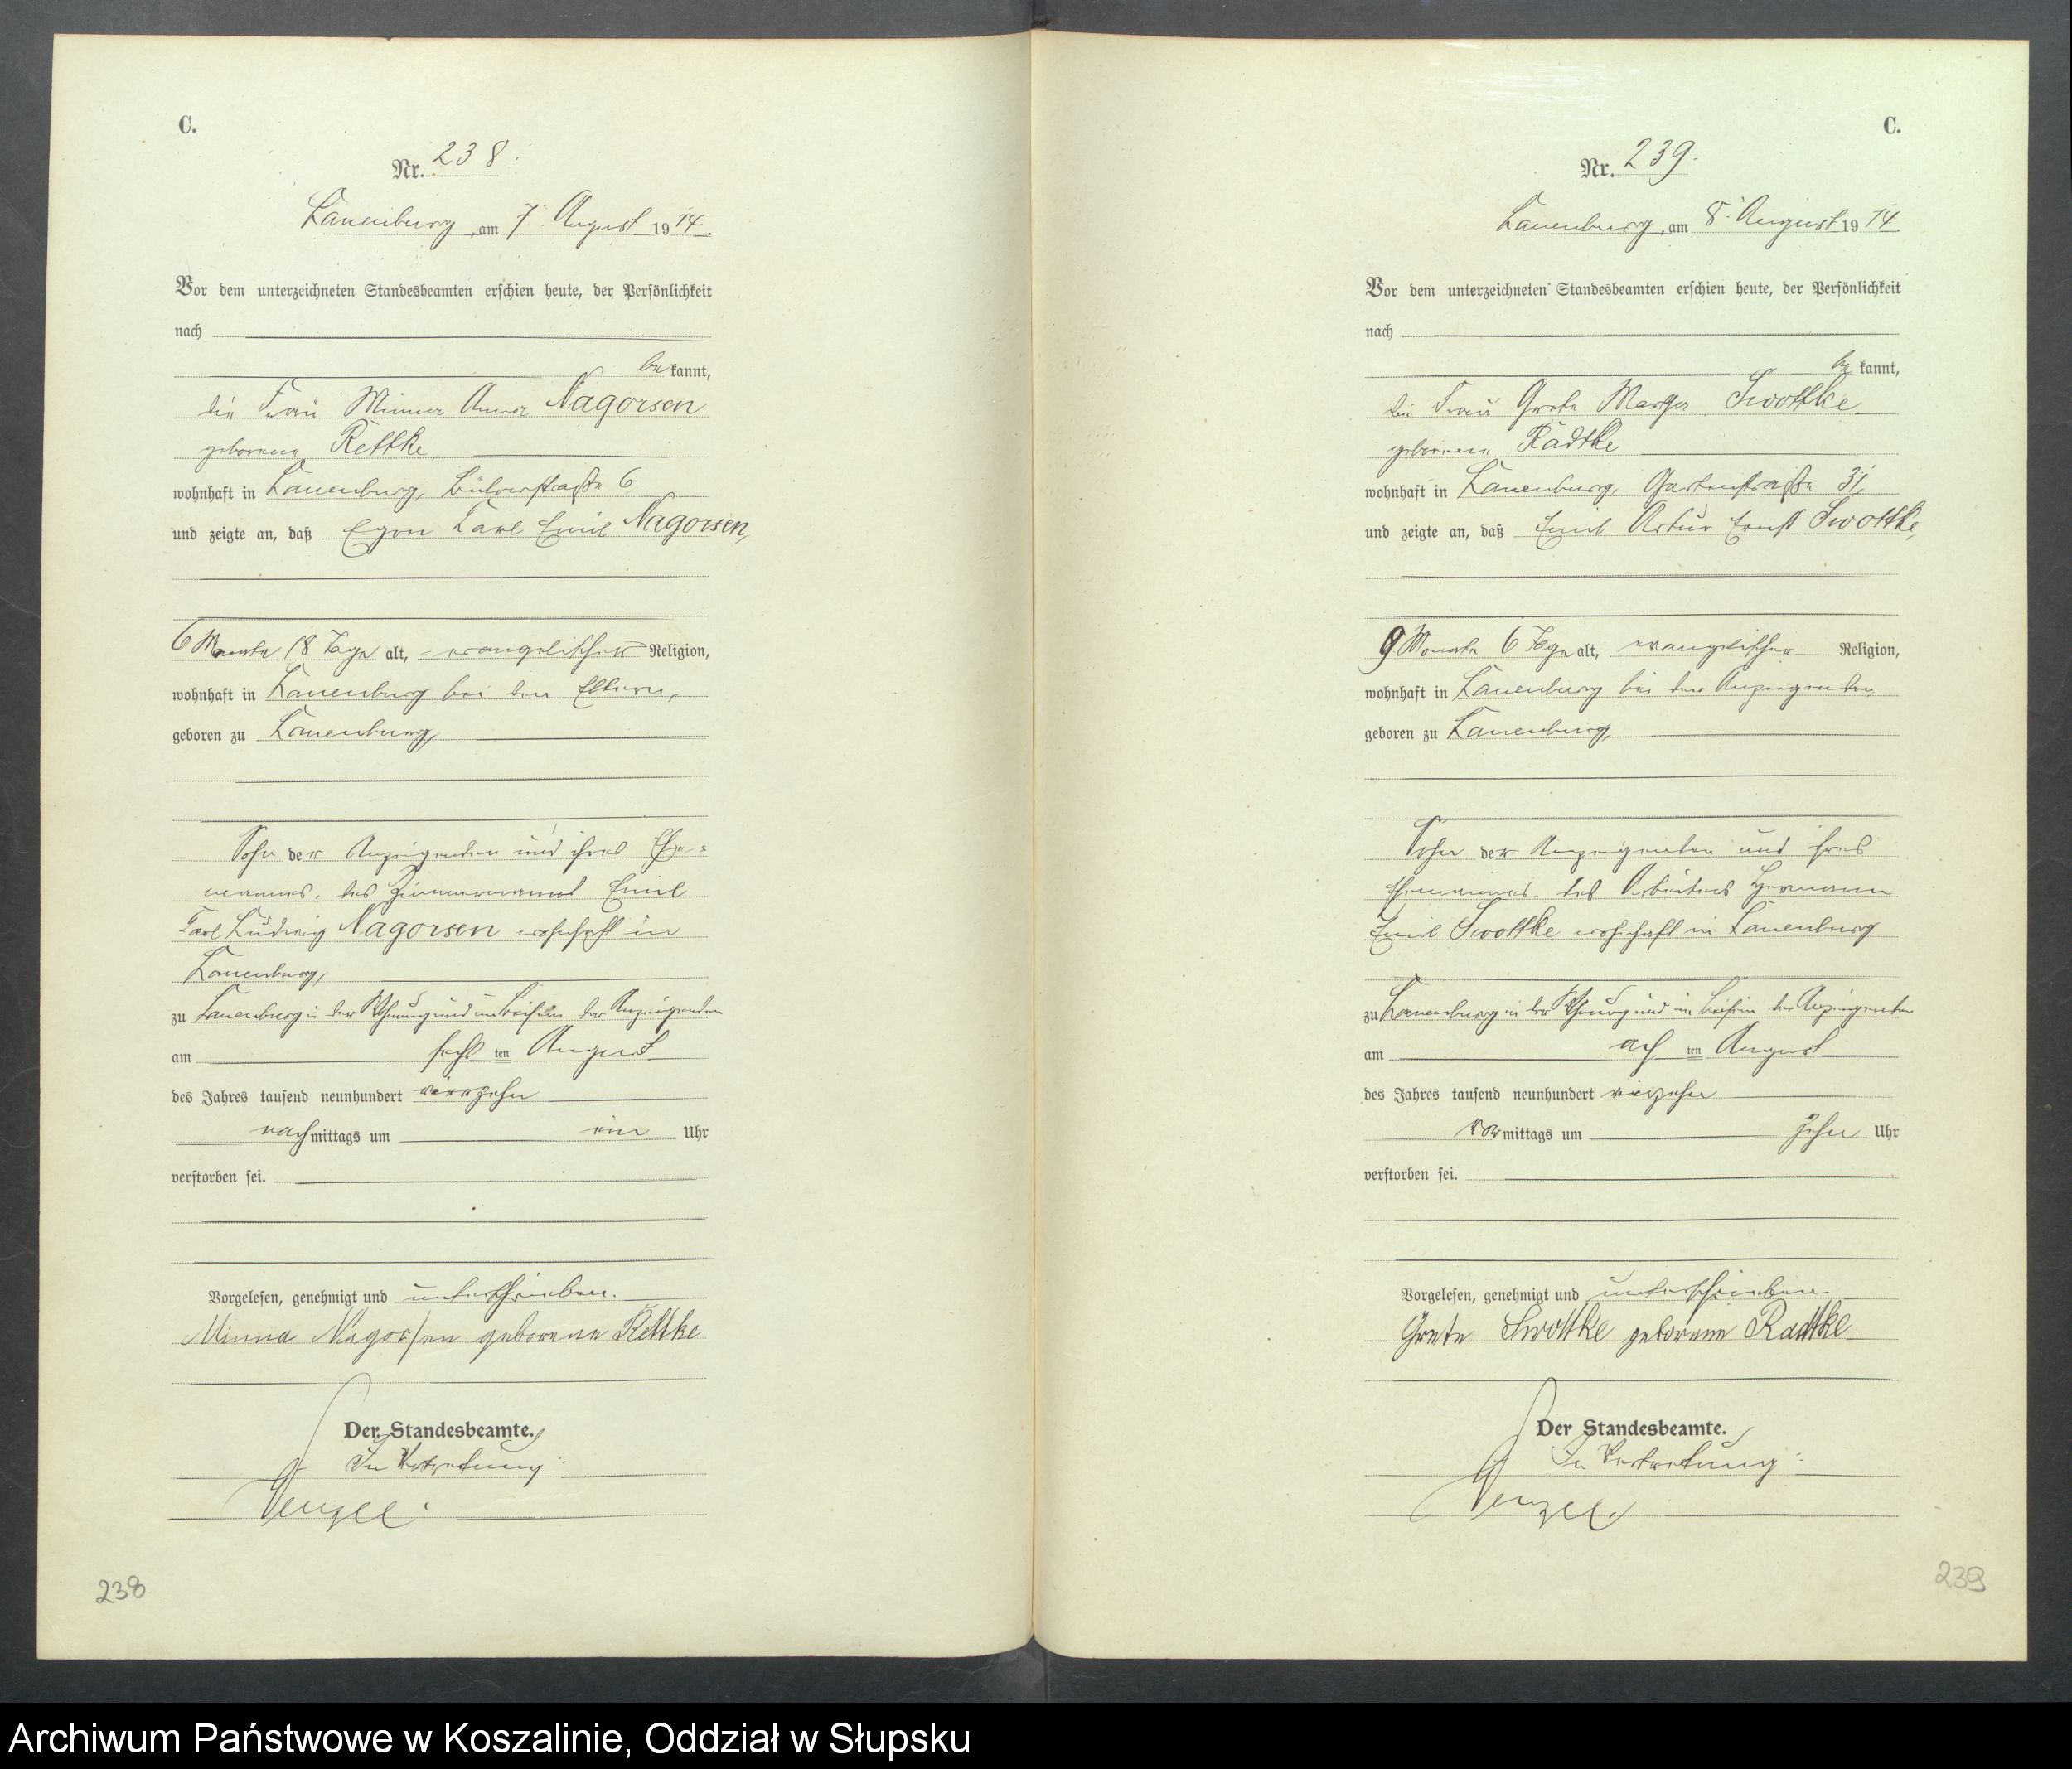 C.
Nr. 238.
Lauenburg, am 7. August 1914.
Vor dem unterzeichneten Standesbeamten erschien heute, der Persönlichkeit
nach
bekannt,
die Frau Minna Anna Nagorsen
geborene Rettke,
wohnhaft in Lauenburg, Bülowstraße 6,
und zeigte an, daß Egon Karl Emil Nagorsen,
6 Monate 18 Tage alt, evangelischer Religion,
wohnhaft in Lauenburg bei den Eltern,
geboren zu Lauenburg,
Sohn der Anzeigenden und ihres Ehe-
mannes, des Zimmermanns Emil
Karl Ludwig Nagorsen wohnhaft in
Lauenburg,
zu Lauenburg in der Wohnung und im Beisein der Anzeigenden
am sechsten August
des Jahres tausend neunhundert vierzehn
nachmittags um ein Uhr
verstorben sei.
Vorgelesen, genehmigt und unterschrieben.
Minna Nagorsen geborene Rettke
Der Standesbeamte.
In Vertretung:
Wenzel.
238
C.
Nr. 239.
Lauenburg, am 8. August 1914.
Vor dem unterzeichneten Standesbeamten erschien heute, der Persönlichkeit
nach
bekannt,
die Frau Grete Swottke
geborene Radtke
wohnhaft in Lauenburg, Gartenstraße 31,
und zeigte an, daß Emil Artur Ernst Swottke,
9 Monate 6 Tage alt, evangelischer Religion,
wohnhaft in Lauenburg bei der Anzeigenden,
geboren zu Lauenburg,
Sohn der Anzeigenden und ihres
Ehemannes, des Arbeiters Hermann
Emil Swottke wohnhaft in Lauenburg
zu Lauenburg in der Wohnung und im Beisein der Anzeigenden
am achten August
des Jahres tausend neunhundert vierzehn
vormittags um zehn Uhr
verstorben sei.
Vorgelesen, genehmigt und unterschrieben.
Grete Swottke geborene Radtke
Der Standesbeamte.
In Vertretung:
Wenzel.
239
Archiwum Państwowe w Koszalinie, Oddział w Słupsku